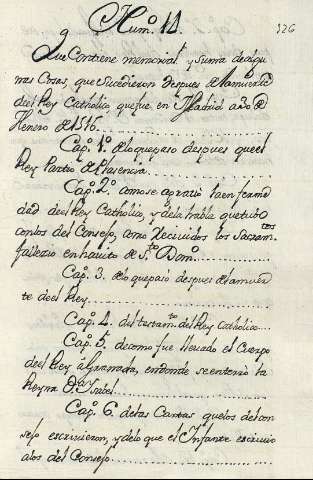 9 Num.º 11. 326
Que Contiene memorial y suma de algu
nas Cosas, que sucedieron despues de la muerte
del Rey Catholico, que fue en Madrid a 20 de
Henero de 1516.
Cap.º 1.º de lo que paso despues que el
Rey Partio de Plasencia.
Cap.º 2.º como se agravió la enferme
dad del Rey Catholico, y de la habla que tubo
con los del Consejo, como recividos los Sacram.tos
falleció en havito de S.to Dom.º
Cap.º 3. de lo que pasó despues de la muer
te del Rey
Cap.º 4. del testam.to del Rey Catholico
Cap.º 5. de como fue llevado el Cuerpo
del Rey à Granada, en donde se enterró la
Reyna D.ª Isabel.
Cap.º 6. de las Cartas que los del con
sejo escrivieron, y de lo que el Infante escrivio
a los del Consejo